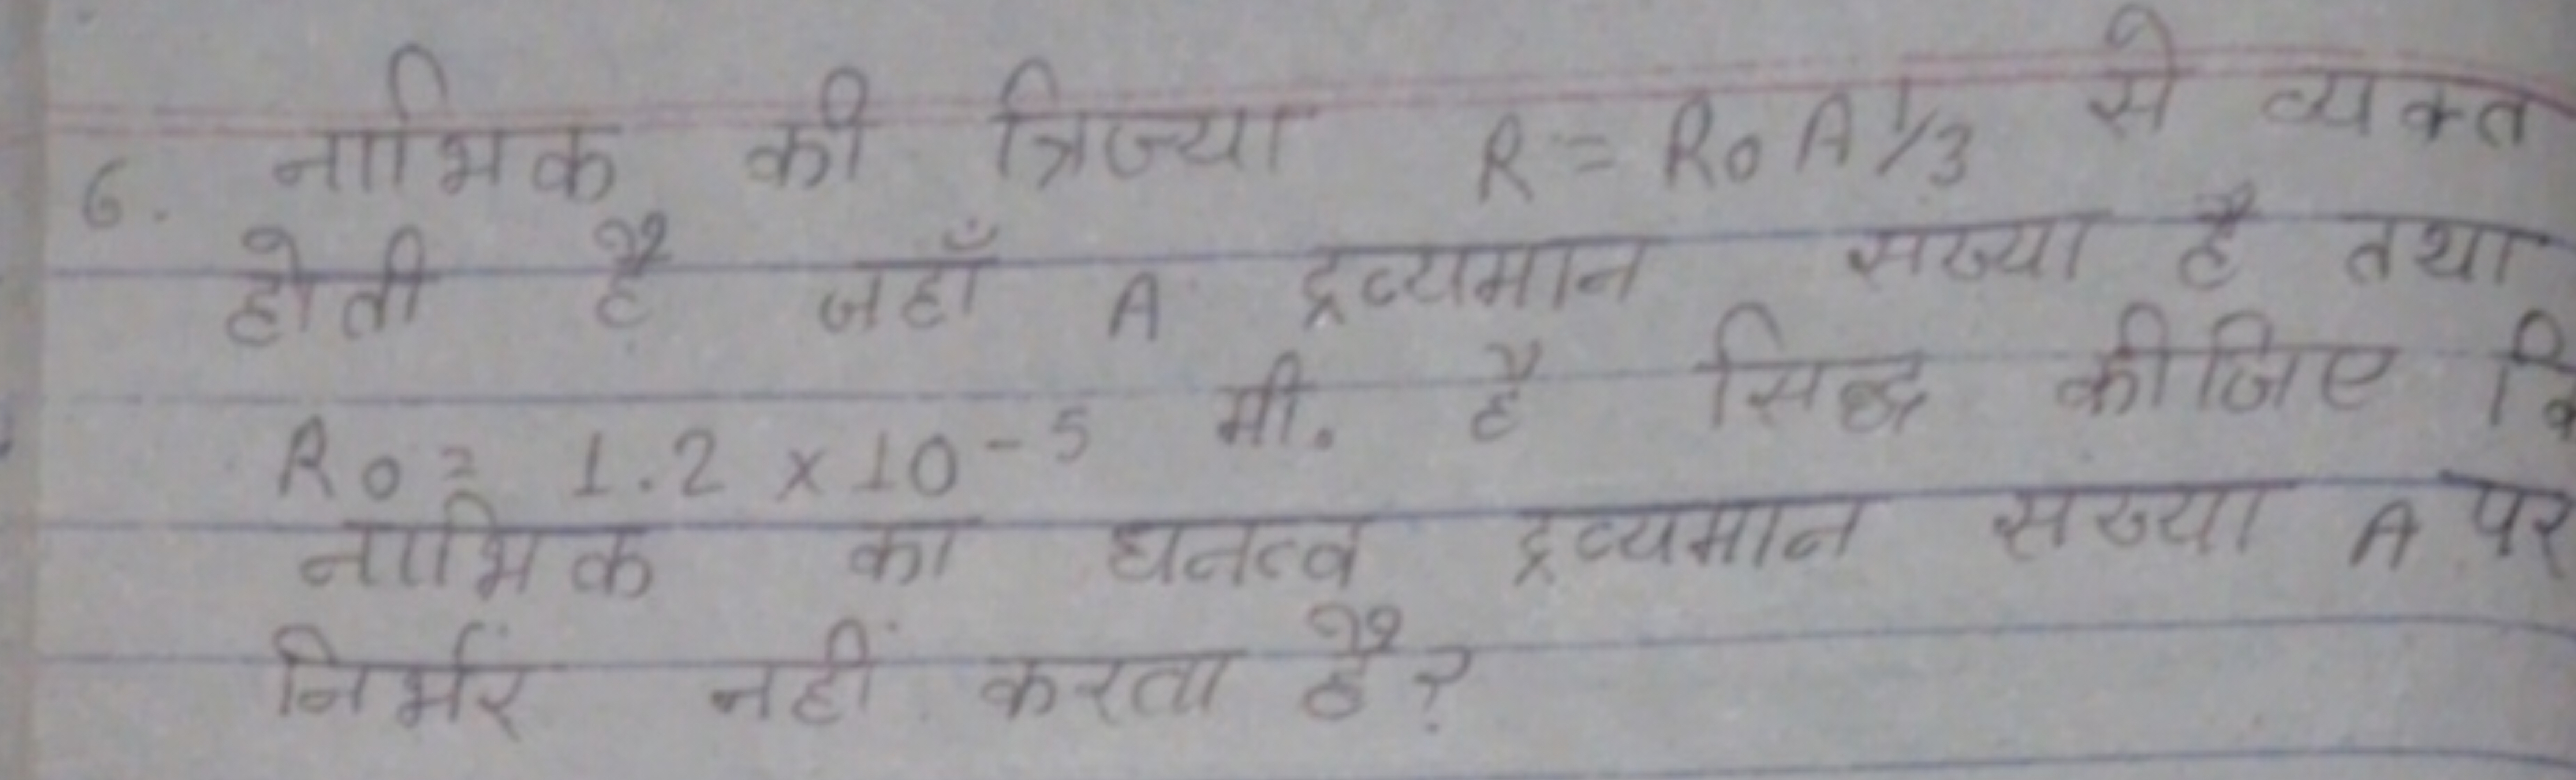 6. नाभिक की त्रिज्या R = R₀ A⅓ से व्यक्त
होती है जहाँ A द्रव्यमान सख्या है तथा
R₀ = 1.2 × 10⁻⁵ मी. है सिद्ध कीजिए कि
नाभिक का घनत्व द्रव्यमान सख्या A पर
निर्भर नहीं करता है?